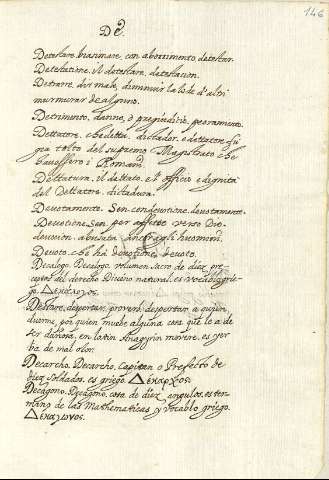 146
De.
Detestare. biasimare, con aborrimento detestar.
Detestatione. il detestare, detestacion.
Detrarre, dir male, diminuir la lode d'altri
murmurar de alguno.
Detrimento, danno, o pregiudicio, peoramento.
Dettatore, che detta, dictador, e dettatore
tolto del supremo Magistrato che
i Romani.
Dettatura, il dettato, e l'officio e dignità
del Dettatore, dictadura.
Devotamente. con devotione, devotamente.
Devotione. affetto verso Dio
devocion, gli huomini.
Devoto, che há devotione, devoto.
Decalogo. Decalogo, volumen sacro de diez pre-
ceptos del derecho Divino natural, es vocablo grie-
go. Δεκάλογος.
Destare, despertar, proverb. despertar a quien
duerme, por quien muebe alguna cosa que le a de
ser dañosa, en latin Anagyrin movere, es yer-
ba de mal olor.
Decarcho. Decarcho, Capitan o Prefecto de
diez Soldados, es griego. Δεκαρχος.
Decagono. Decagono, cosa de diez angulos, es ter-
mino de las Mathematicas y vocablo griego.
Δεκαγωνος.